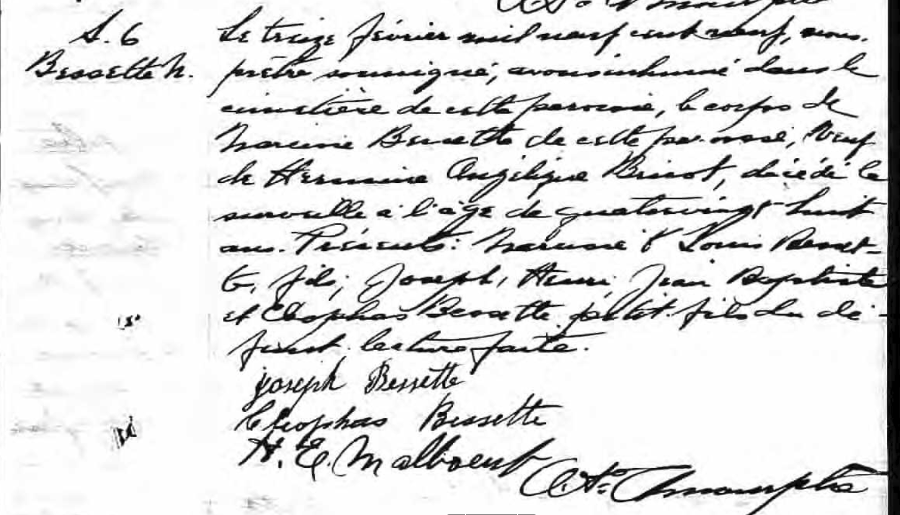 S. 6
Bessette N.
Le treize février mil neuf cent neuf, nous
prêtre soussigné, avons inhumé dans le
cimetière de cette paroisse, le corps de
Narcisse Bessette de cette paroisse, veuf
de Hermine Angélique Bricot, décédé la
surveille à l'âge de quatrevingt huit
ans. Présents: Narcisse & Louis Besset-
te, fils; Joseph, Henri, Jean Baptiste
et Cléophas Bessette petit-fils du dé-
funt. lecture faite.
Joseph Bessette
Cléophas Bessette
H. E. Malboeuf